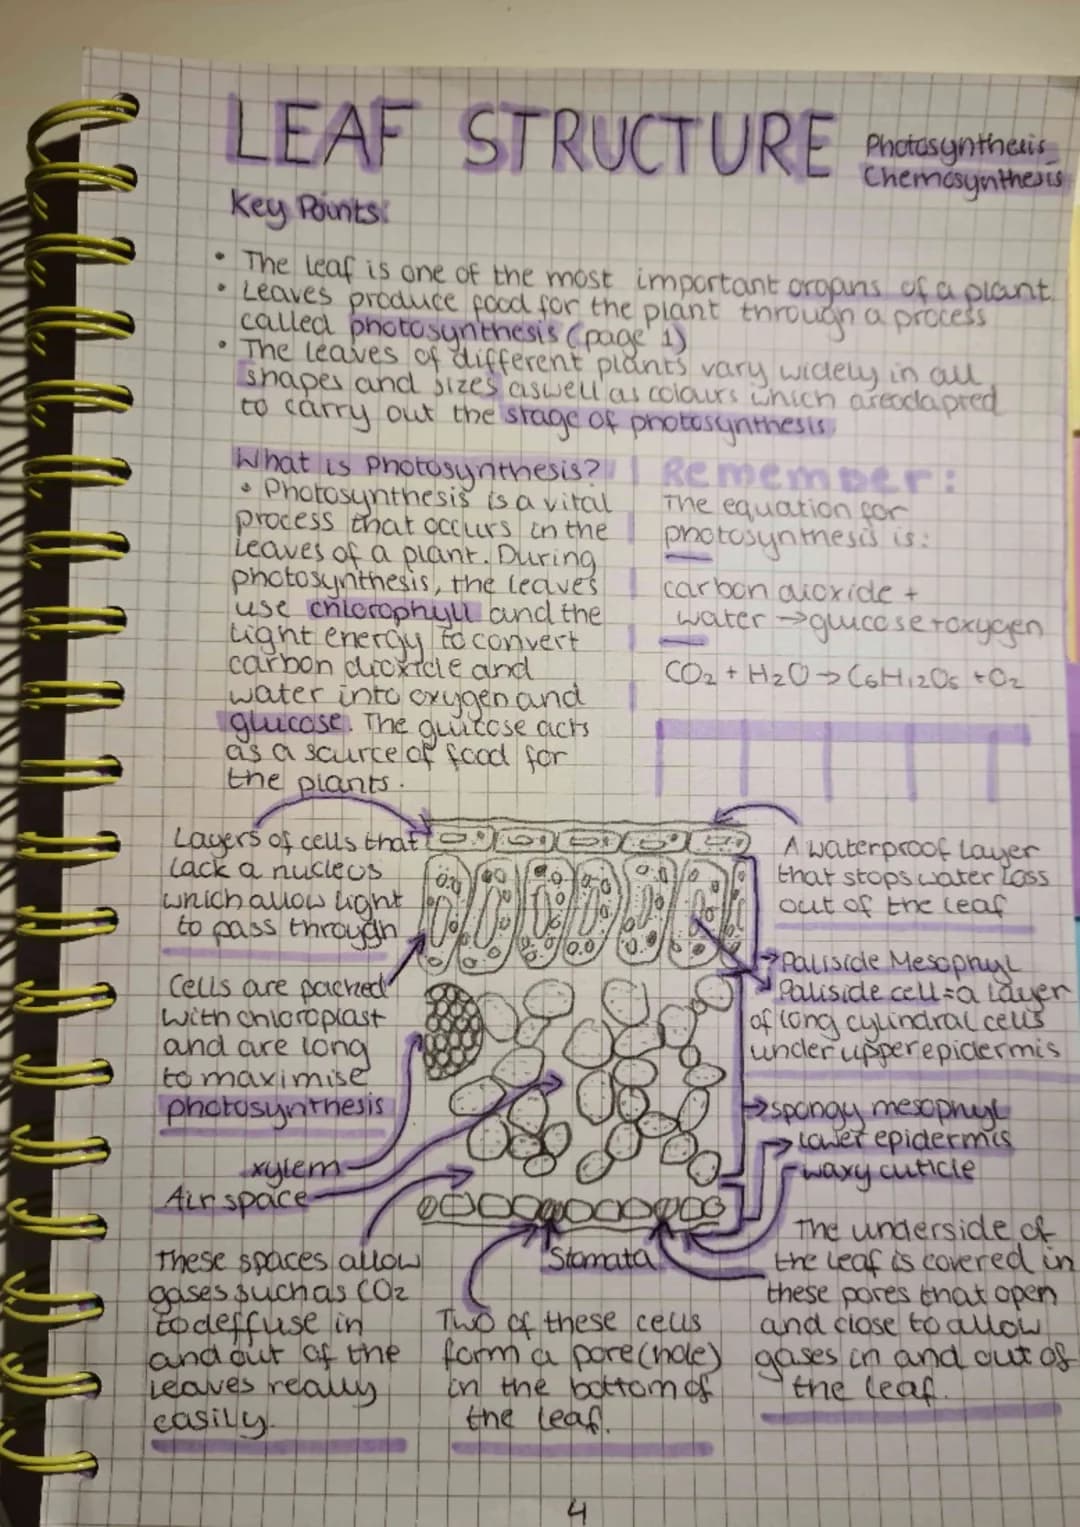 LEAF STRUCTURE
Photosynthesis
Chemosynthesis
Key Points:
• The leaf is one of the most important organs of a plant
• Leaves produce food for the plant through a process
called photosynthesis (page 1)
• The leaves of different plants vary widely in all
shapes and sizes aswell as colours which are
to carry out the stage of photosynthesis
What is Photosynthesis?
• Photosynthesis is a vital
process that occurs in the
leaves of a plant. During
photosynthesis, the leaves
use chlorophyll and the
light energy to convert
carbon dioxide and
water into oxygen and
glucose. The glucose acts
as a source of food for
the plants.
Remember:
The equation for
photosynthesis is:
carbon dioxide +
water → glucose + oxygen
CO₂ + H₂O → C₆H₁₂O₆ + O₂
Layers of cells that
lack a nucleus
which allow light
to pass through
Cells are packed
with chloroplast
and are long
to maximise
photosynthesis
xylem
Air space
These spaces allow
gases such as CO₂
to deffuse in
and out of the
leaves really
easily.
A waterproof layer
that stops water loss
out of the leaf
Paliside Mesophyl
Paliside cell = a layer
of long cylindral cells
under upper epidermis
spongy mesophyl
lower epidermis
waxy cuticle
Stomata
Two of these cells
form a pore (hole)
in the bottom of
the leaf.
The underside of
the leaf is covered in
these pores that open
and close to allow
gases in and out of
the leaf.
4